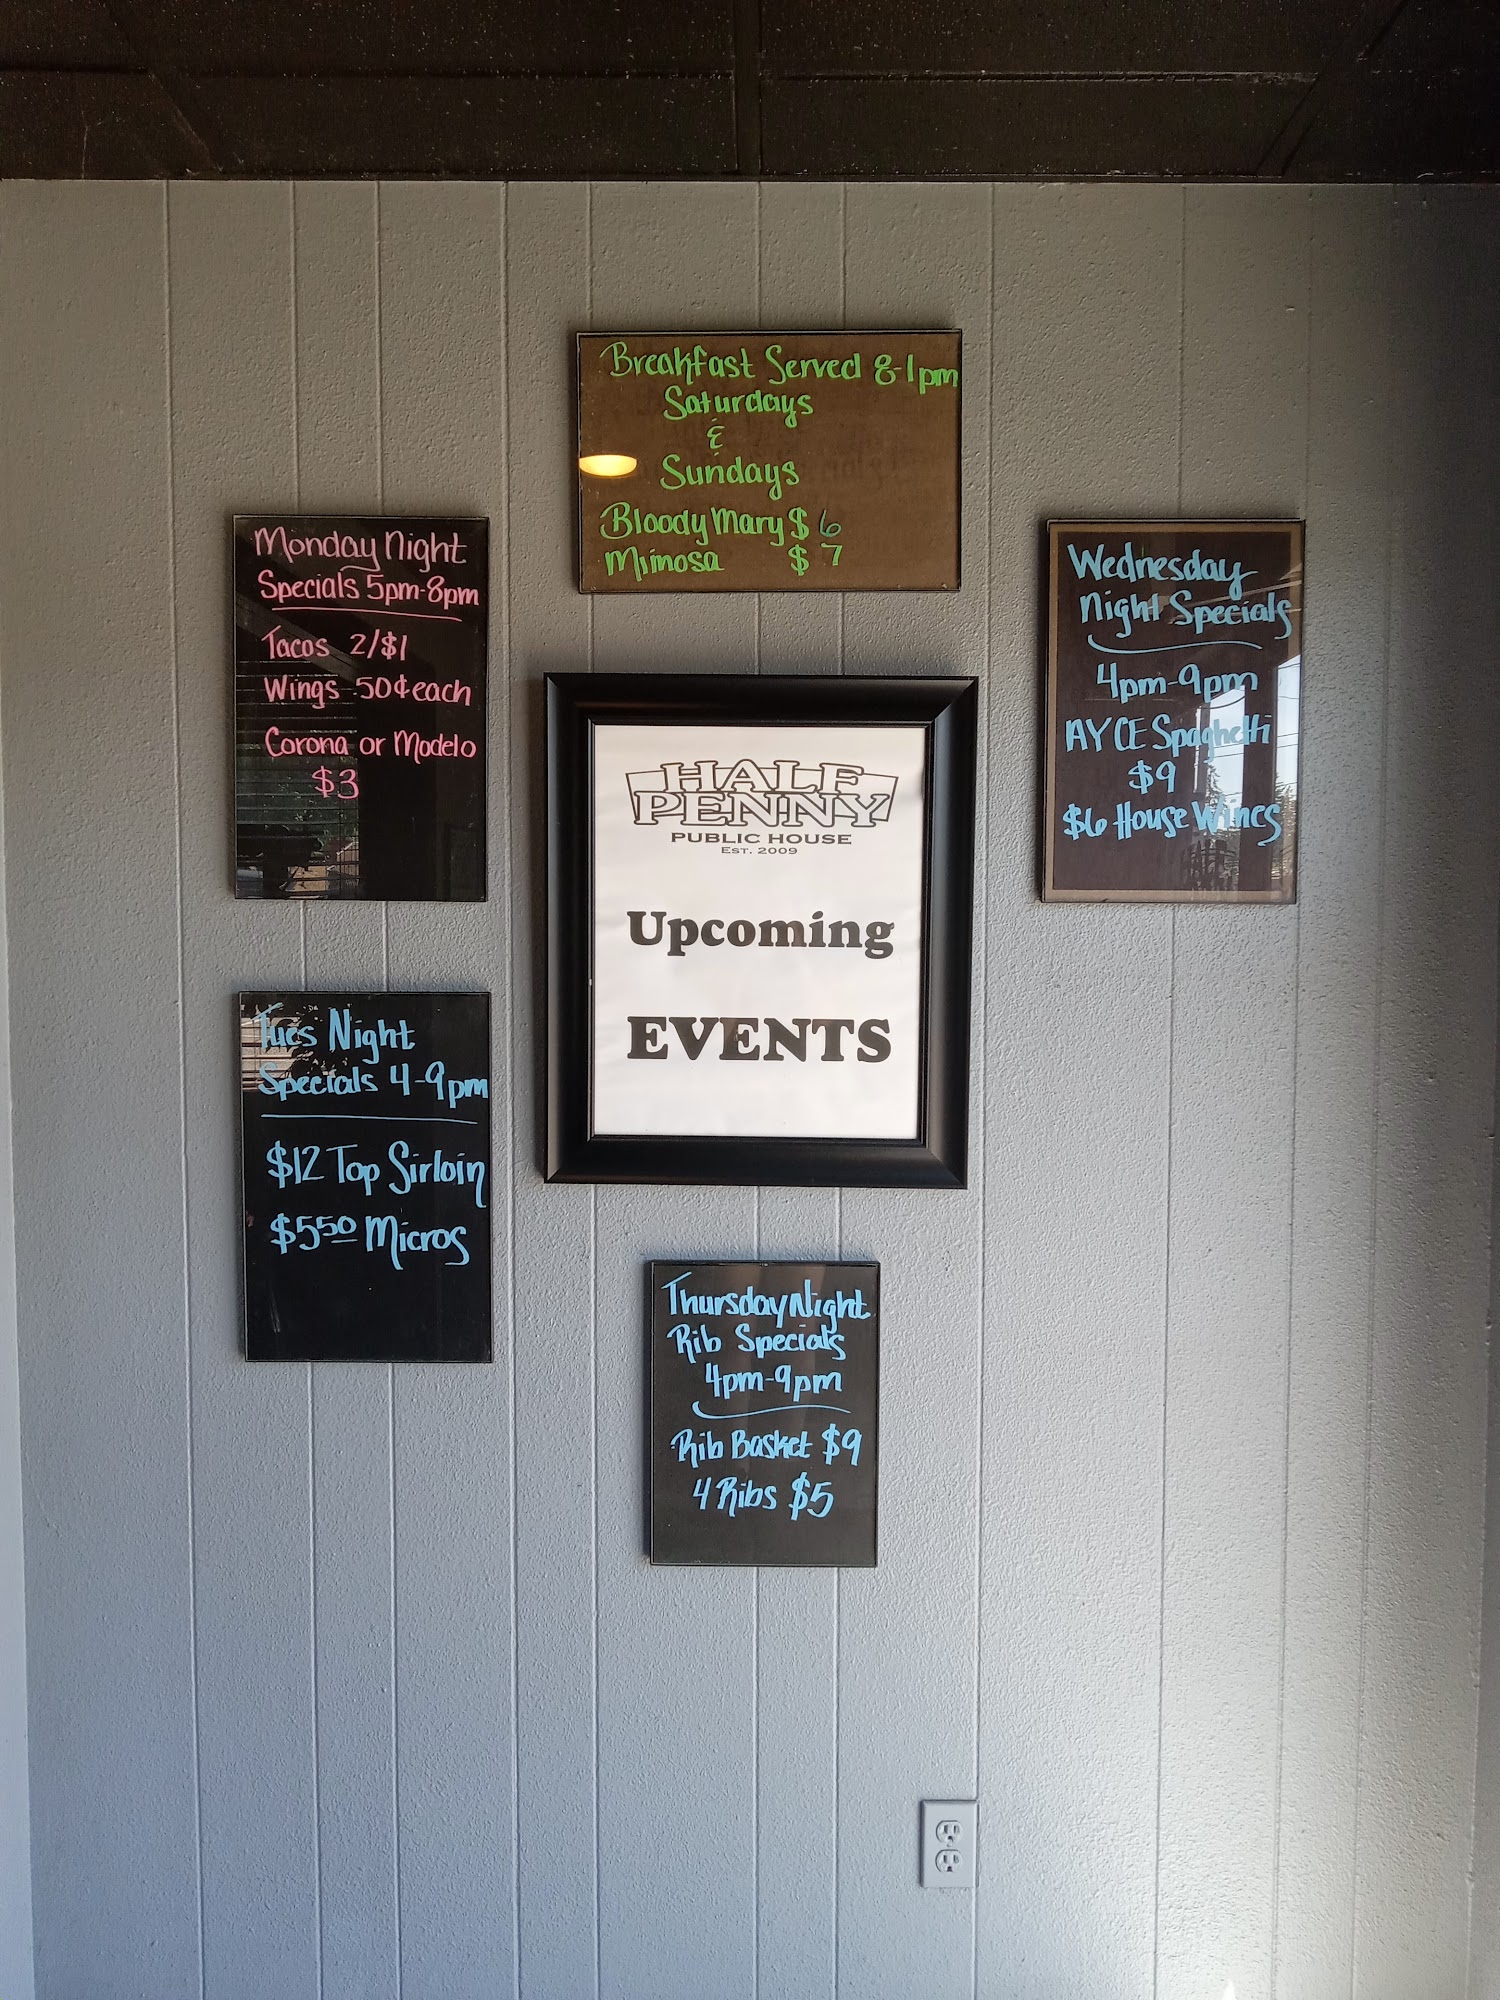 Breakfast Served 8-1pm
Saturdays
&
Sundays
Bloody Mary $6
Mimosa $7
Monday Night
Specials 5pm-8pm
Tacos 2/$1
Wings .50¢ each
Corona or Modelo
$3
Wednesday
Night Specials
4pm-9pm
AYCE Spaghetti
$9
$6 House Wines
HALF
PENNY
PUBLIC HOUSE
EST. 2009
Upcoming
EVENTS
Tues Night
Specials 4-9pm
$12 Top Sirloin
$5.50 Micros
Thursday Night
Rib Specials
4pm-9pm
Rib Basket $9
4 Ribs $5